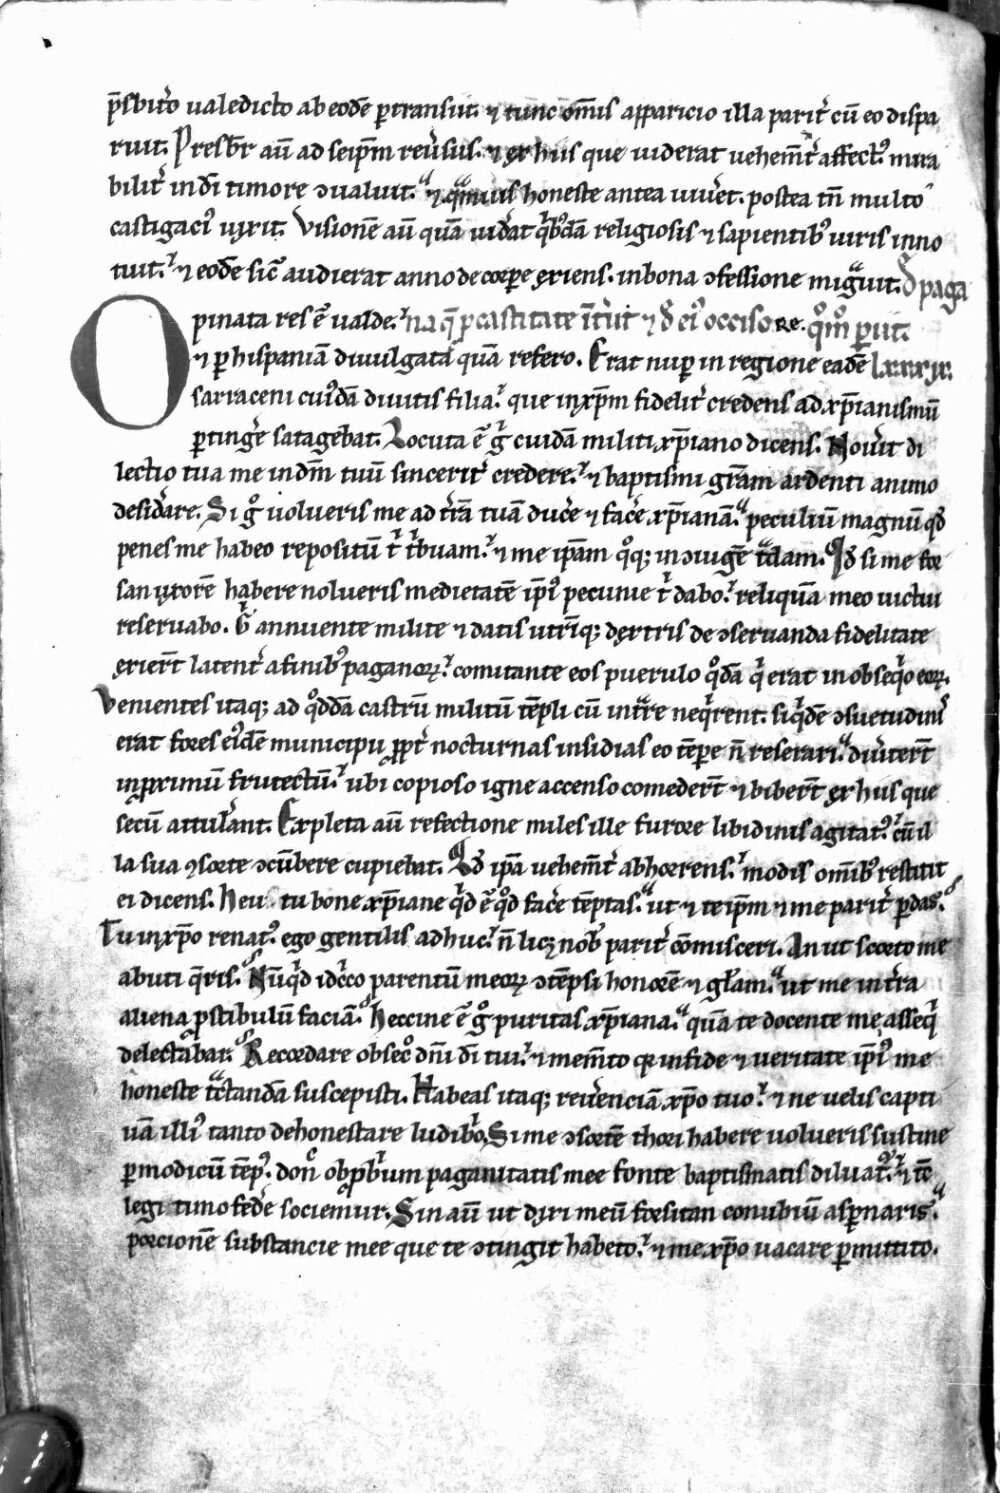 p̄sbit̾o ualedicto ab eodē ꝑtransiit. ⁊ tunc om̄is apparicio illa parit̾ cū eo dispa
ruit. Presbr̄ aū ad seip̄m reu̾sus. ⁊ ex hiis que uiderat uehem̄t̾ affectꝰ mira
bilit̾ in dī timore ↄualuit. ⁊ qͣmuis honeste antea uiu̾et. postea tn̄ multo
castigacꝰ uixit. Visionē aū quā uid̾at qͥbꝰdā religiosis ⁊ sapientibꝰ uiris inno
tuit. ⁊ eodē sic̄ audierat anno de corꝑe exiens. in bona ↄfessione migͣuit. D̾ paga
Opinata res ē ualde. na q̄ ꝓ castitate int̾iit ⁊ d̾ eiꝰ occisore. qͦm̊ ꝑiit.
⁊ ꝑ hispaniā diuulgata quā refero. Erat nuꝑ in regione eadē lxxxix.
sarraceni cuiꝰdā diuitis filia. que in xp̄m fidelit̾ credens ad xp̄ianismū
ꝑting̾e satagebat. Locuta ē gͥ cuidā militi xp̄iano dicens. Nou̾it di
lectio tua me in dm̄ tuū sincerit̾ credere. ⁊ baptismi gr̄am ardenti animo
desid̾are. Si gͦ uolueris me ad t̾rā tuā duc̾e ⁊ fac̾e xp̄ianā. peculiū magnū qd̾
penes me habeo repositū tͥ tͥbuam. ⁊ me ip̄am qͦq; in ↄiugē tͣdam. Qd̾ si me for
san uxorē habere nolueris medietatē ip̄iꝰ pecunie tͥ dabo. reliquā meo uictui
reseruabo. Gͥ annuente milite ⁊ datis utrīq; dextris de ↄseruanda fidelitate
exier̄t latent̾ a finibꝰ paganoꝝ. comitante eos puerulo qͦdā qͥ erat in obseqͥo eoꝝ.
Venientes itaq; ad qͦddā castrū militū tēpli cū intͣre neqͥrent. siqͥdē ↄsuetudinis
erat fores eiꝰdē municipii ꝓpt̾ nocturnas insidias eo tēꝑe n̄ reserari. diu̾ter̄t
in ꝓximū frutectū. ubi copioso igne accenso comeder̄t ⁊ biber̄t ex hiis que
secū attul̾ant. Expleta aū refectione miles ille furore libidinis agitatꝰ. cū il
la sua ↄsorte ↄcūbere cupiebat. Qd̾ ip̄a uehem̄t̾ abhorrens. modis om̄ibꝰ restitit
ei dicens. Heu tu bone xp̄iane qͥd ē qͦd fac̾e tēptas. ut ⁊ te ip̄m ⁊ me parit̾ ꝑdas.
Tu in xp̄o renatꝰ. ego gentilis adhuc. n̄ licꝫ nob̾ parit̾ cōmisceri. An ut scorto me
abuti q̄ris. Nūqͥd idc̾co parentū meoꝝ ↄtēpsi honorē ⁊ gl̄am. ut me in t̾ra
aliena ꝓstibulū faciā. Heccine ē gͦ puritas xp̄iana. quā te docente me asseqͥ
delectabar. Recordare obsecͦ dn̄i dī tui. ⁊ mem̄to qꝛ in fide ⁊ ueritate ip̄iꝰ me
honeste tͣctandā suscepisti. Habeas itaq; reu̾enciā xp̄o tuo. ⁊ ne uelis capti
uā illiꝰ tanto dehonestare ludibͥo. Si me ↄsortē thori habere uolueris sustine
ꝑmodicū tēpꝰ. donͨ obꝓbͥum paganitatis mee fonte baptismatis diluatꝰ. ⁊ tc̄
legittimo fed̾e sociemur. Sin aū ut dixi meū forsitan conubiū asꝑnaris.
porcionē substancie mee que te ↄtingit habeto. ⁊ me xp̄o uacare ꝑmittito.